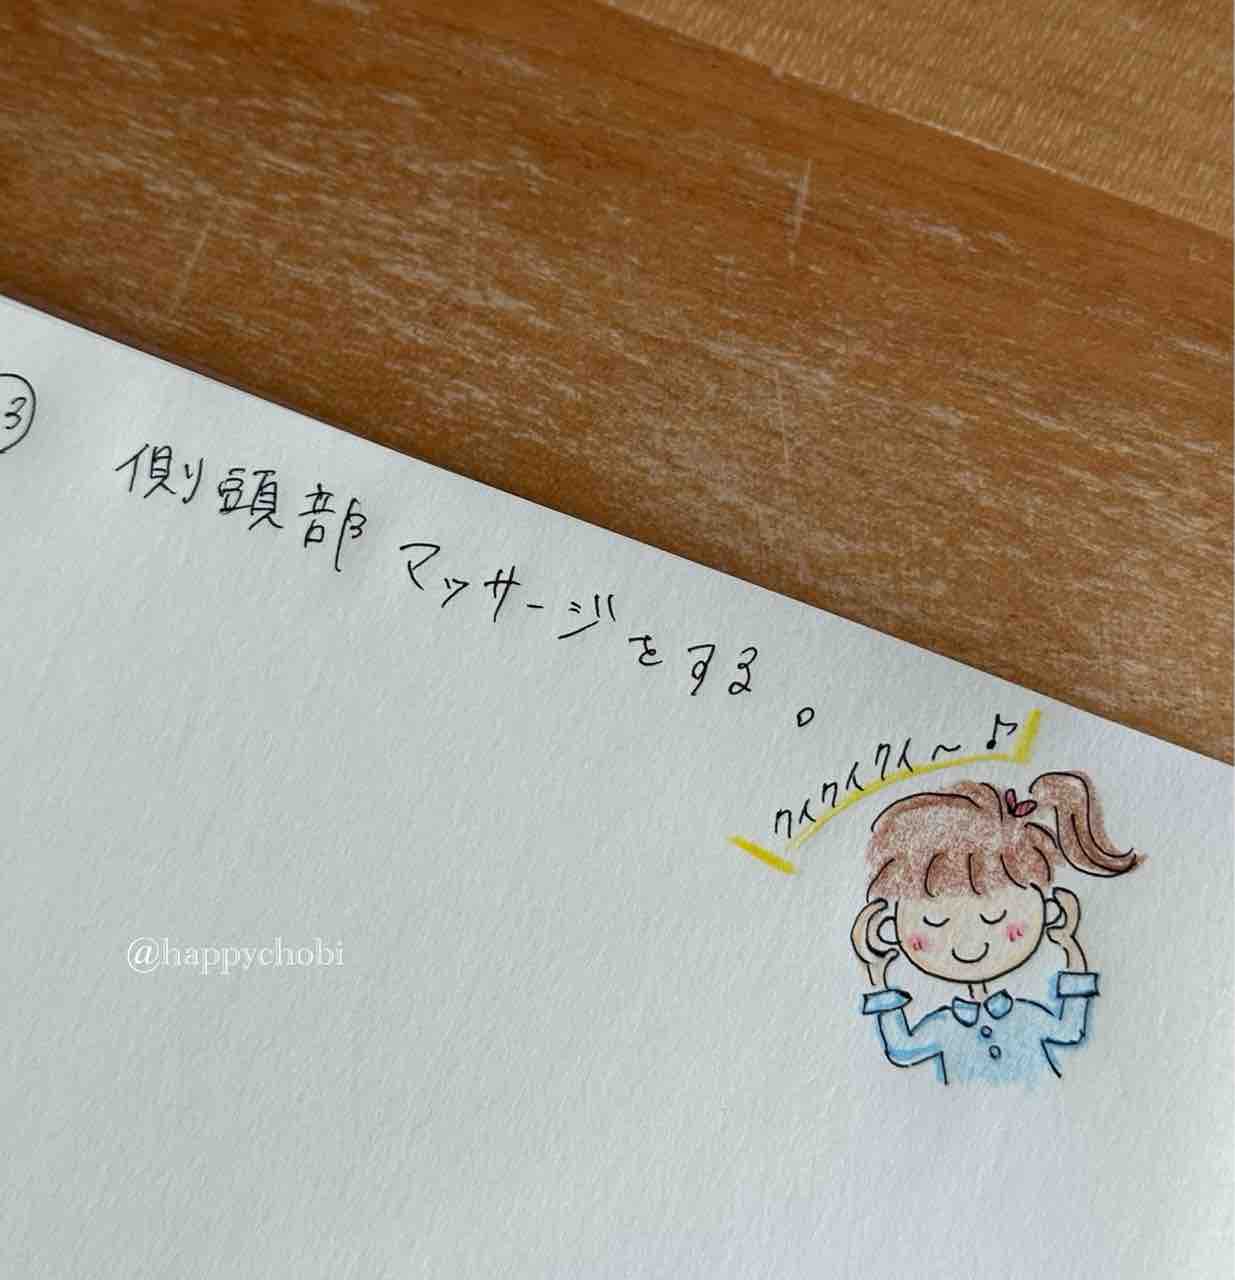 ③ 側頭部マッサージをする。
クイクイクイ〜♪
@happychobi